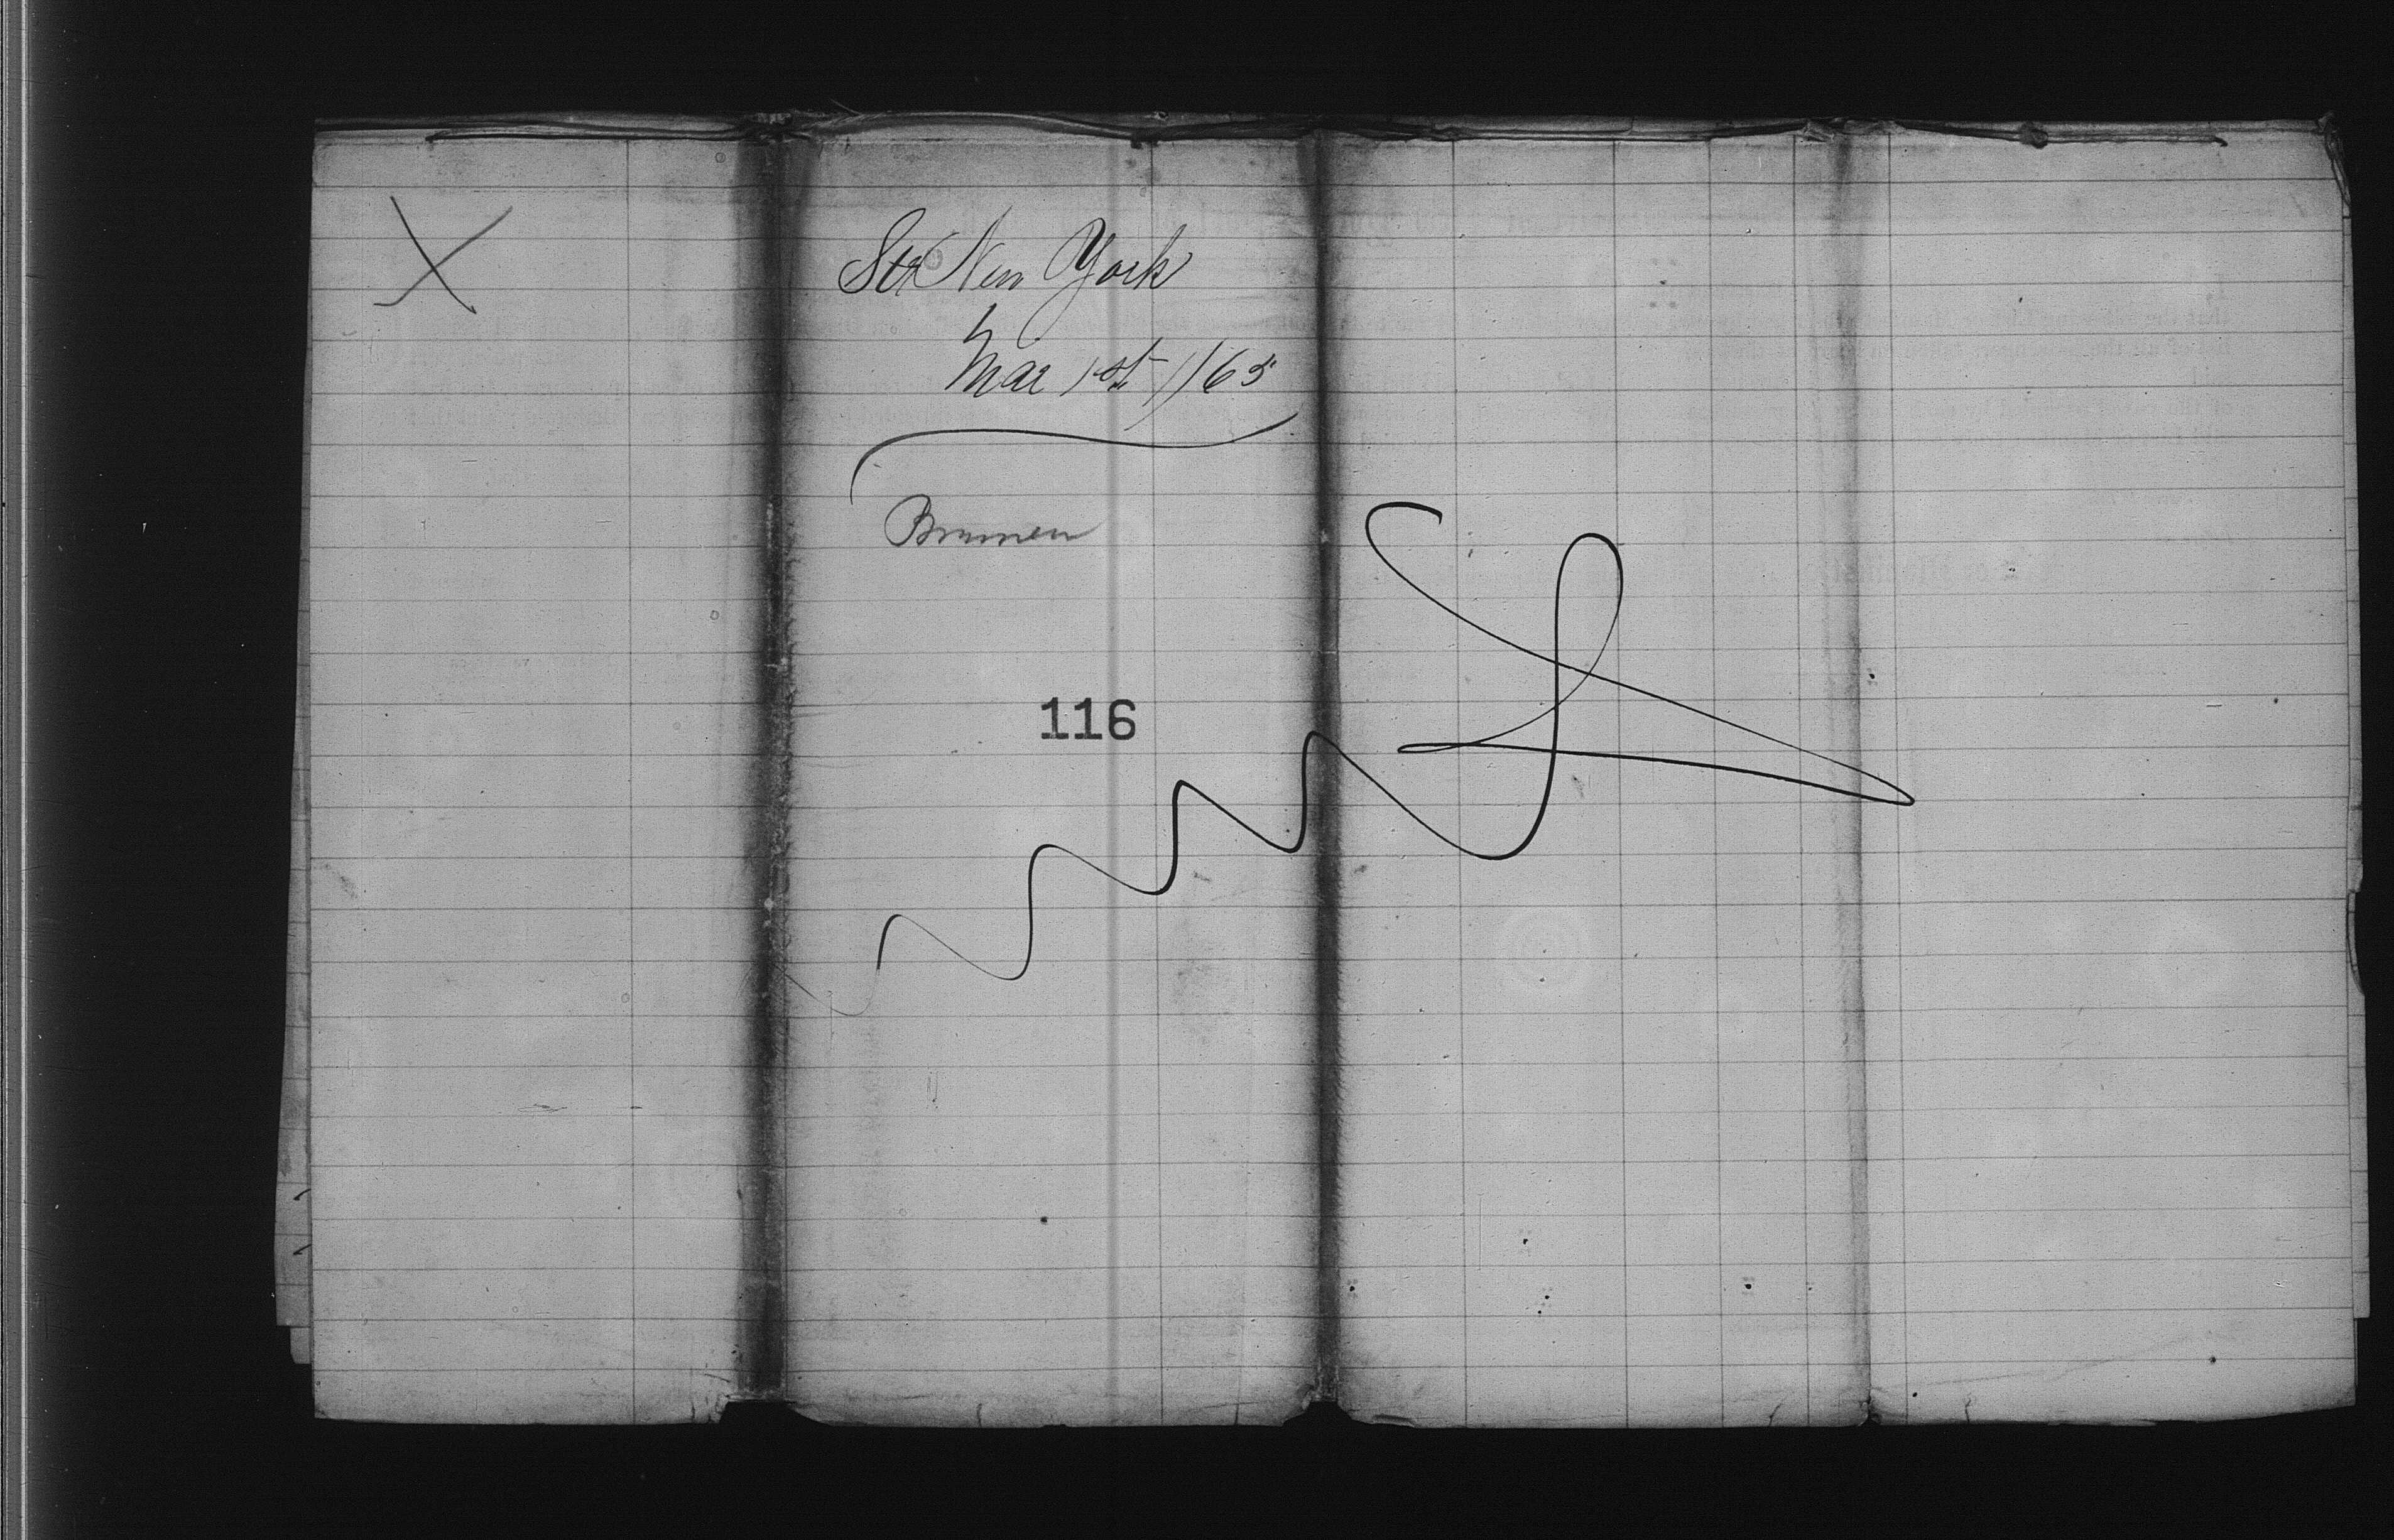 X
Str New York
Mar 1st //65
Bremen
116